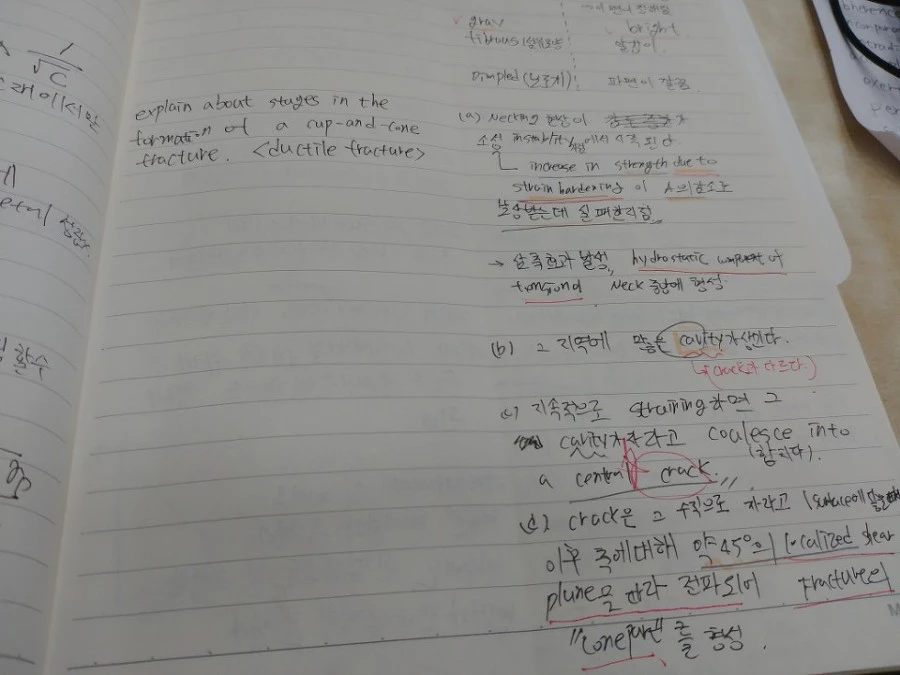 1
√C
explain about stages in the
formation of a cup-and-cone
fracture. <ductile fracture>
gray
bright
fibrous
Dimpled
파면이
(a) Necking 현상이
소성 instability 에서 시작된다
increase in strength due to
strain hardening 이 A의 감소를
보상받는데 실패한지점
→ 삼축효과 발생, hydrostatic component of
Neck 중앙에 형성.
(b) 그 지역에 많은 cavity가 생긴다.
↳ (crack과 다르다.)
(c) 지속적으로 straining하면 그
cavity가 자라고 coalesce into
(합치다).
a central crack.
(d) crack은 그 수직으로 자라고 (surface에
이후 축에대해 약 45°의 localized shear
plane을 따라 전파되어 fracture의
"cone part" 를 형성.